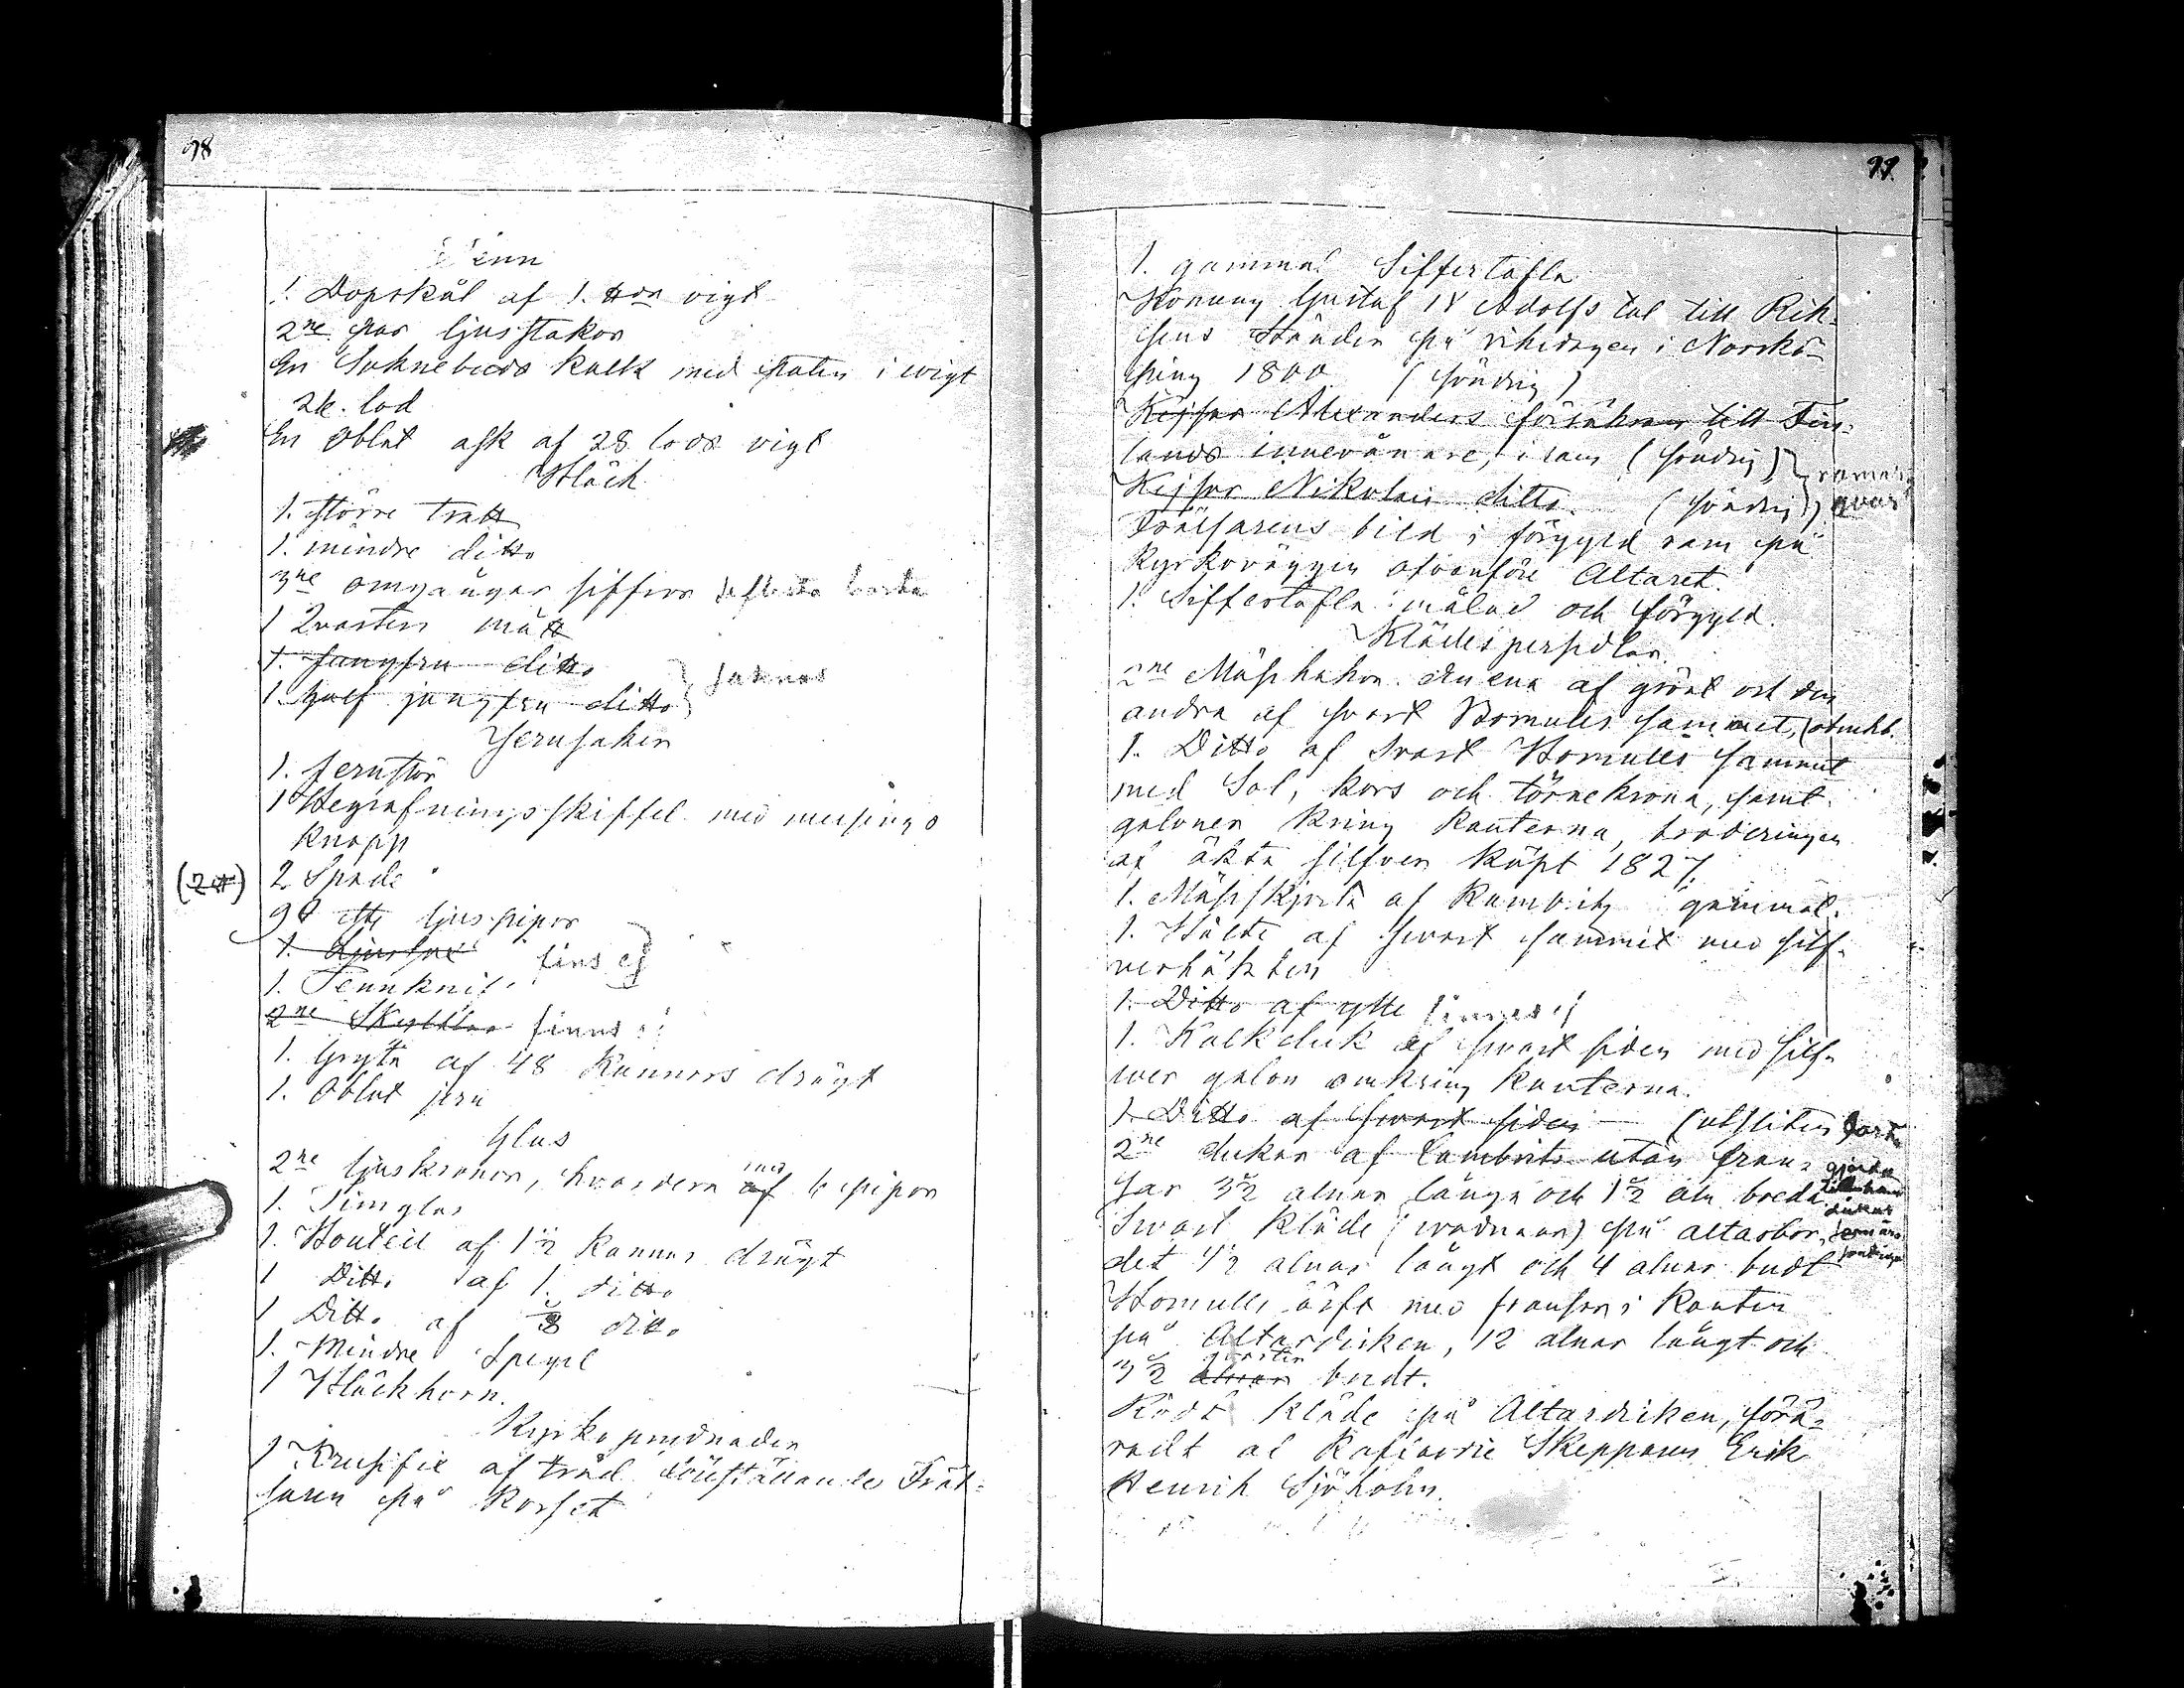 98
Tenn
1. Dopskål af 1. vigt
2ne par ljusstakor
En Soknebuds kalk med paten i wigt
2½. lod
En Oblat ask af 28 lods vigt
Bläck
1. större tratt
1. mindre ditto
3ne omgångar siffror borta
1 Qvarters mått
1. Jungfru ditto
1. half jungfru ditto } saknas
Jernsaker
1. jernstör
1 Begrafningsskiffel med messings
knopp
2 Spade
90 ljuspipor
1. Ljussax fins ej
1. Tennknif
2ne Skyfflar finns ej
1. Gryta af 48 Kannors drägt
1. Oblat jern
Glas
2ne ljuskronor, hvardera af med 6 pipor
1. Timglas
1. Bouteil af 1½ Kannas drägt
1 Ditto af 1. ditto
1 Ditto af ditto
1. Mindre Spegel
1 Bläckhorn.
Kyrko prydnader
1 Krusifix af träd föreställande Fräl-
saren på Korset
99.
1. gammal Siffertafla
Konung Gustaf IV Adolfs tal till Rik-
sens Ständer på riksdagen i Norrkö-
ping 1800 (söndrig)
Kejsar Alexanders försäkran till Fin-
lands innevånare, i ram (söndrig)
Kejsar Nikolais ditto. (söndrig) } qvar
Frälsarens bild i förgyld ram på
Kyrkoväggen ofvanföre Altaret.
1. Siffertafla målad och förgyld.
Klädespersedlar.
2ne Mässhakar den ena af grönt och den
andra af svart Bomulls sammet,
1. Ditto af Svart Bomulls sammet
med Sol, kors och törnekrona, samt
galoner kring Kanterna, broderingen
af äkta silfver köpt 1827.
1. Mässskjorta af Kambrity gammal.
1. Bälte af svart sammet med silf-
verhäkten
1. Ditto af ylle finnes ej
1. Kalkduk af svart siden med silf-
wer galon omkring Kanterna.
1. Ditto af svart siden — (utsliten) bort
2ne dukar af Cambrits utan fran-
sar 3½ alnar långa och 1½ aln breda
gjorda
till
dukar
som äro
Svart Kläde (wadmar) på altarbor-
det 4½ alnar långt och 4 alnar bredt
Bomulls med fransar i Kanten
på Altardisken, 12 alnar långt och
3½ alnar qvarter bredt.
Rödt Kläde på Altardisken, förä-
radt af Skepparen Erik
Henrik Sjöholm.